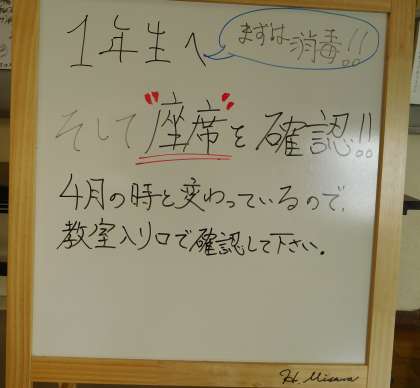 1年生へ
まずは消毒!!
そして"座席"を確認!!
4月の時と変わっているので、
教室入り口で確認して下さい。
H. Misawa